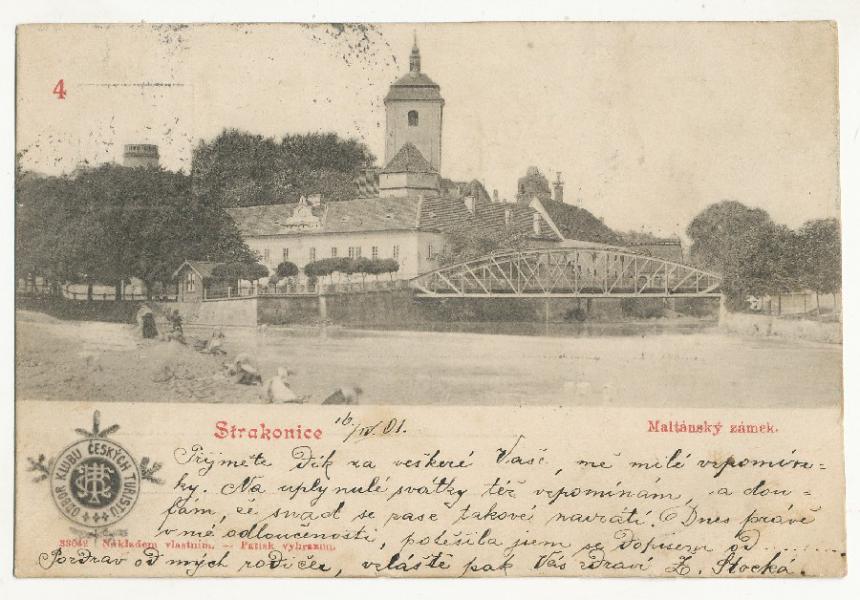 4
Strakonice
16/IV. 01.
Maltánský zámek.
ODBOR KLUBU ČESKÝCH TURISTŮ
Přijměte Dík za veškeré Vaše, mé milé vzpomínk-
ky. Na uplynulé svátky též vzpomínám, a dou-
fám, že snad se zase takové navrátí. Dnes právě
v mé odloučenosti, potěšila jsem se dopisem od ........
33042 Nákladem vlastním. — Patisk vyhrazen.
Pozdrav od mých rodičů, zvláště pak Vás zdraví Z. Stocká.